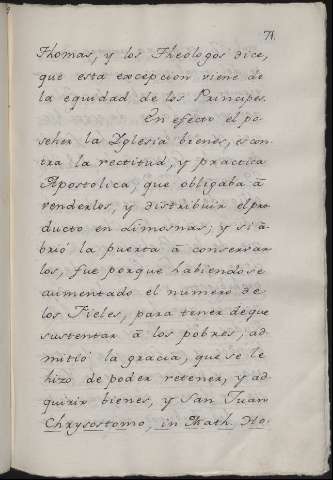 71.
Thomas, y los Theologos dice,
que esta excepcion viene de
la equidad de los Principes.
En efecto el po-
seher la Yglesia bienes, es con-
tra la rectitud, y practica
Apostolica, que obligaba â
venderlos, y distribuir el pro-
ducto en Limosnas; y si â-
brió la puerta â conservar
los, fue porque habiendose
aumentado el numero de
los Fieles, para tener deque
sustentar â los pobres, ad-
mitió la gracia, que se le
hizo de poder retener, y ad-
quirir bienes, y San Juan
Chrysostomo, in Math. Ho-